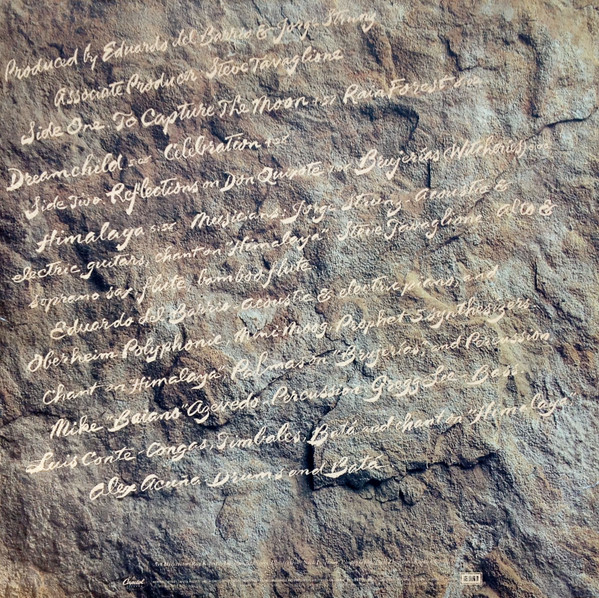 Produced by Eduardo del Barrio & Jorge Strunz
Associate Producer Steve Tavaglione
Side One To Capture The Moon 4:57 Rain Forest
Dreamchild Celebration
Side Two Reflections on Don Quixote Brujerias (Witchcress)
Himalaya Musicians: Jorge Strunz - Acoustic &
electric guitars, chant on "Himalaya" Steve Tavaglione - Alto &
Soprano sax, flute, bamboo flute
Eduardo del Barrio - acoustic & electric piano, and
Oberheim Polyphonic, Mini Moog, Prophet 5 synthesizers
Chant on Himalaya, Palmas on "Brujerias", and Percussion
Mike "Baiano" Azevedo - Percussion Gregg Lee - Bass
Luis Conte - Congas, Timbales, Bata and chant on "Himalaya"
Alex Acuna - Drums and Bata
Capitol